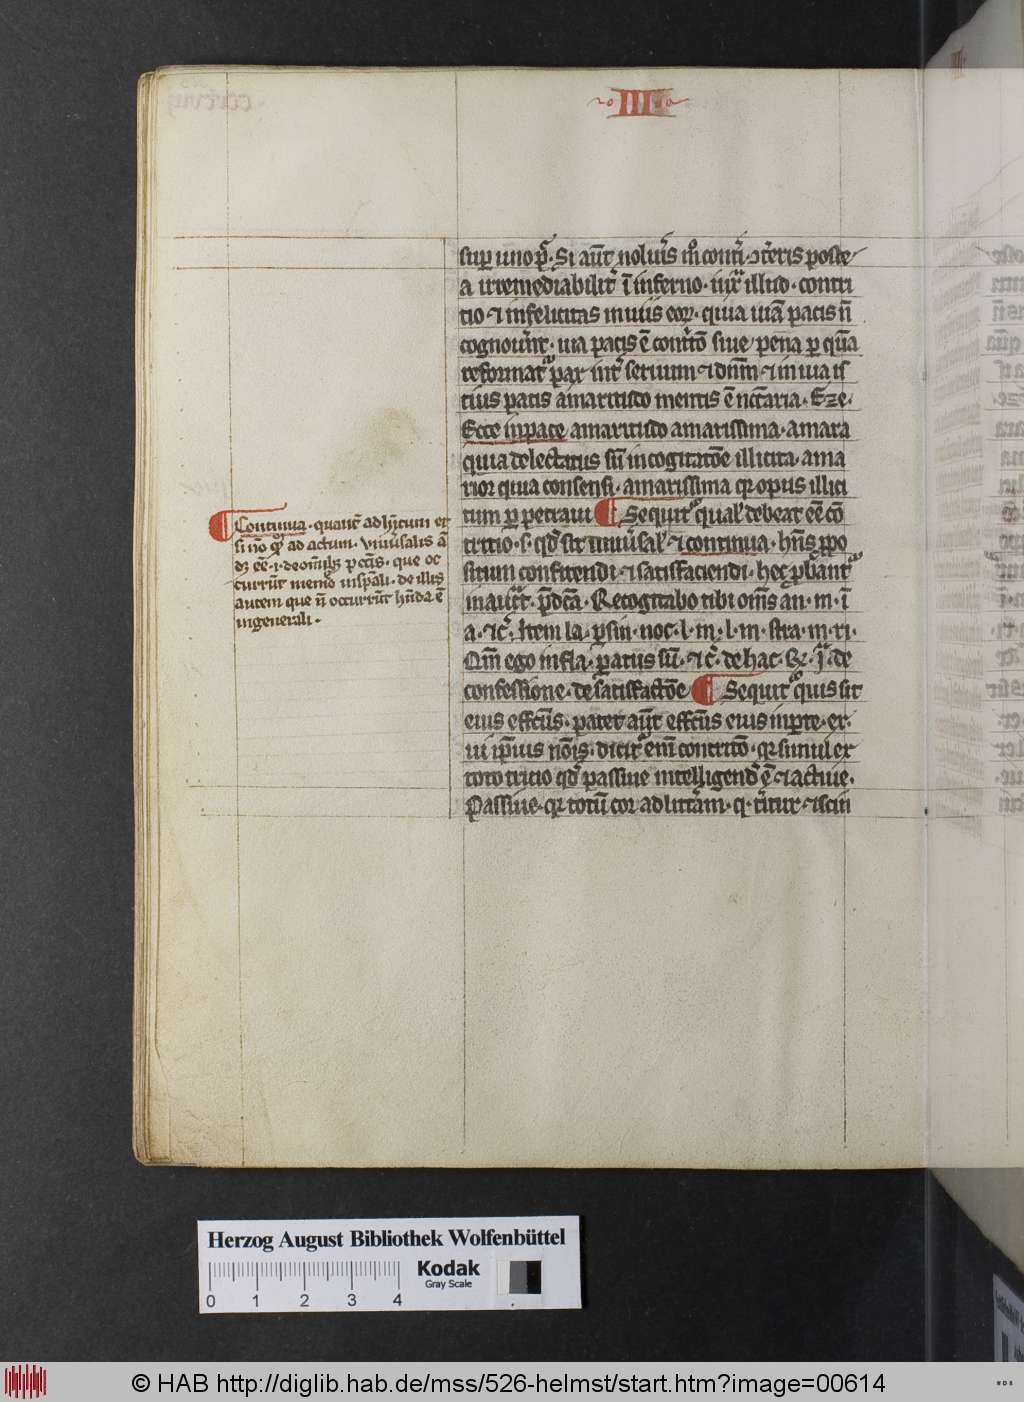 III
sup uno p̃. Si aūt noluĩs m̊ conti ↄteris poste
a irremediabilit̃ ī inferno. iux̃ illud. contri
tio ⁊ infelicitas in uiis eoꝝ. quia uiā pacis ñ
cognoũnt. uia pacis ē cont̃o siue pena ꝑ quā
reformat̃ pax int̃ seruum ⁊ dn̄m ⁊ in uia is
tius pacis amaritudo mentis ē nc̄caria. Eze.
Ecce in pace amaritudo amarissima. amara
quia delectatus sū in cogitatōe illicita. ama
rior quia consensi. amarissima qr opus illici
tum ꝑpetraui ¶ Sequit̃ qual' debeat eē cō
tritio. s. qd̃ sit uniũsal' ⁊ continua. hn̄s ꝓpo
situm confitendi ⁊ satisfaciendi. hec ꝓbant̃
in auct̃. p̃dc̄a. Recogitabo tibi om̄s an. m. ī
a. ⁊c̃. Item la. p sin. noc. l. m. l. m. stra. m. ri.
Qm̄ ego in fla. paratus sū. ⁊c̃. de hac. q̃. j̃. de
confessione. de satisfactōe ¶ Sequit̃ quis sit
eius effc̄us. patet aūt effc̄us eius in pte. ex.
ui ip̄ius nōis. dicit̃ enī contritō. qr simul ex
toto tritio qd̃ passiue intelligend̃ ē ⁊ actiue.
Passiue. qr totū cor ad litt̃am. q. t̃itur. ⁊ scin
¶ Continua. quant̃ ad h̃itum et
si nō q̃ ad actum. Vniũsalis ā
dꝫ eē. i. de omĩbꝫ pcc̄is. que oc
currūt in sp̄ali. de illis
autem que ñ occurrūt hn̄da ē
in generali.
Herzog August Bibliothek Wolfenbüttel
Kodak
Gray Scale
0 1 2 3 4
© HAB http://diglib.hab.de/mss/526-helmst/start.htm?image=00614